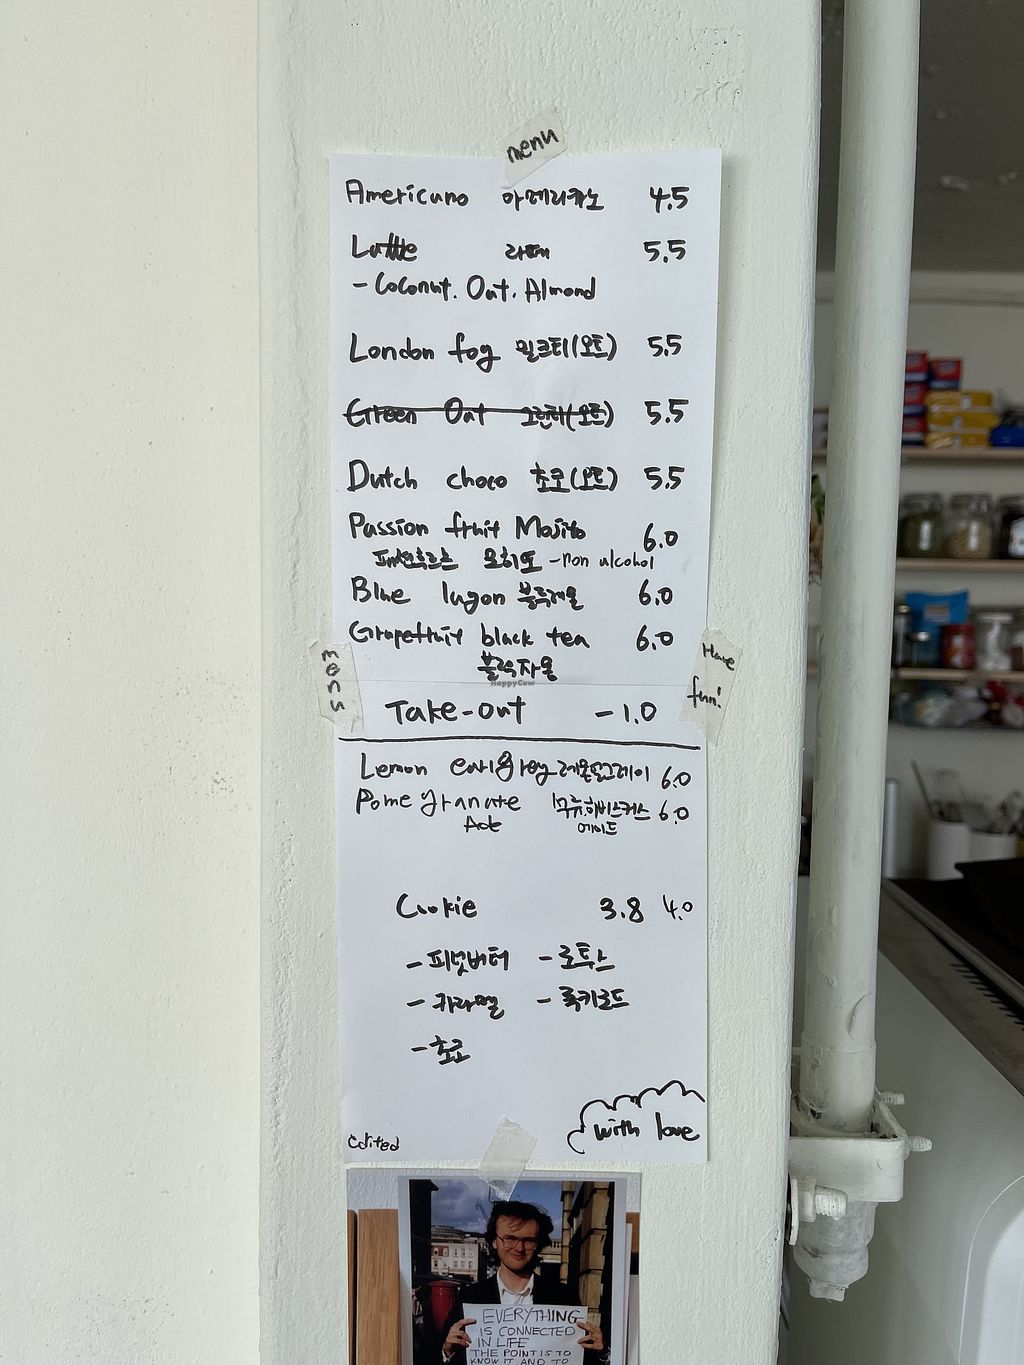 menu
Americano 아메리카노 4.5
Latte 라떼 5.5
- Coconut. Oat. Almond
London fog 밀크티(오트) 5.5
Green Oat 그린티(오트) 5.5
Dutch choco 초코(오트) 5.5
Passion fruit Mojito 6.0
패션후르츠 모히또 - non alcohol
Blue lagon 블루레몬 6.0
Grapefruit black tea 6.0
블랙자몽
HappyCow
Have
fun!
Take-out -1.0
Lemon earlgrey 레몬얼그레이 6.0
Pomegranate 석류.히비스커스 6.0
Ade 에이드
Cookie 3.8 4.0
- 피넛버터 - 로투스
- 카라멜 - 록키로드
- 초코
with love
Edited
EVERYTHING
IS CONNECTED
IN LIFE
THE POINT IS TO
KNOW IT AND TO